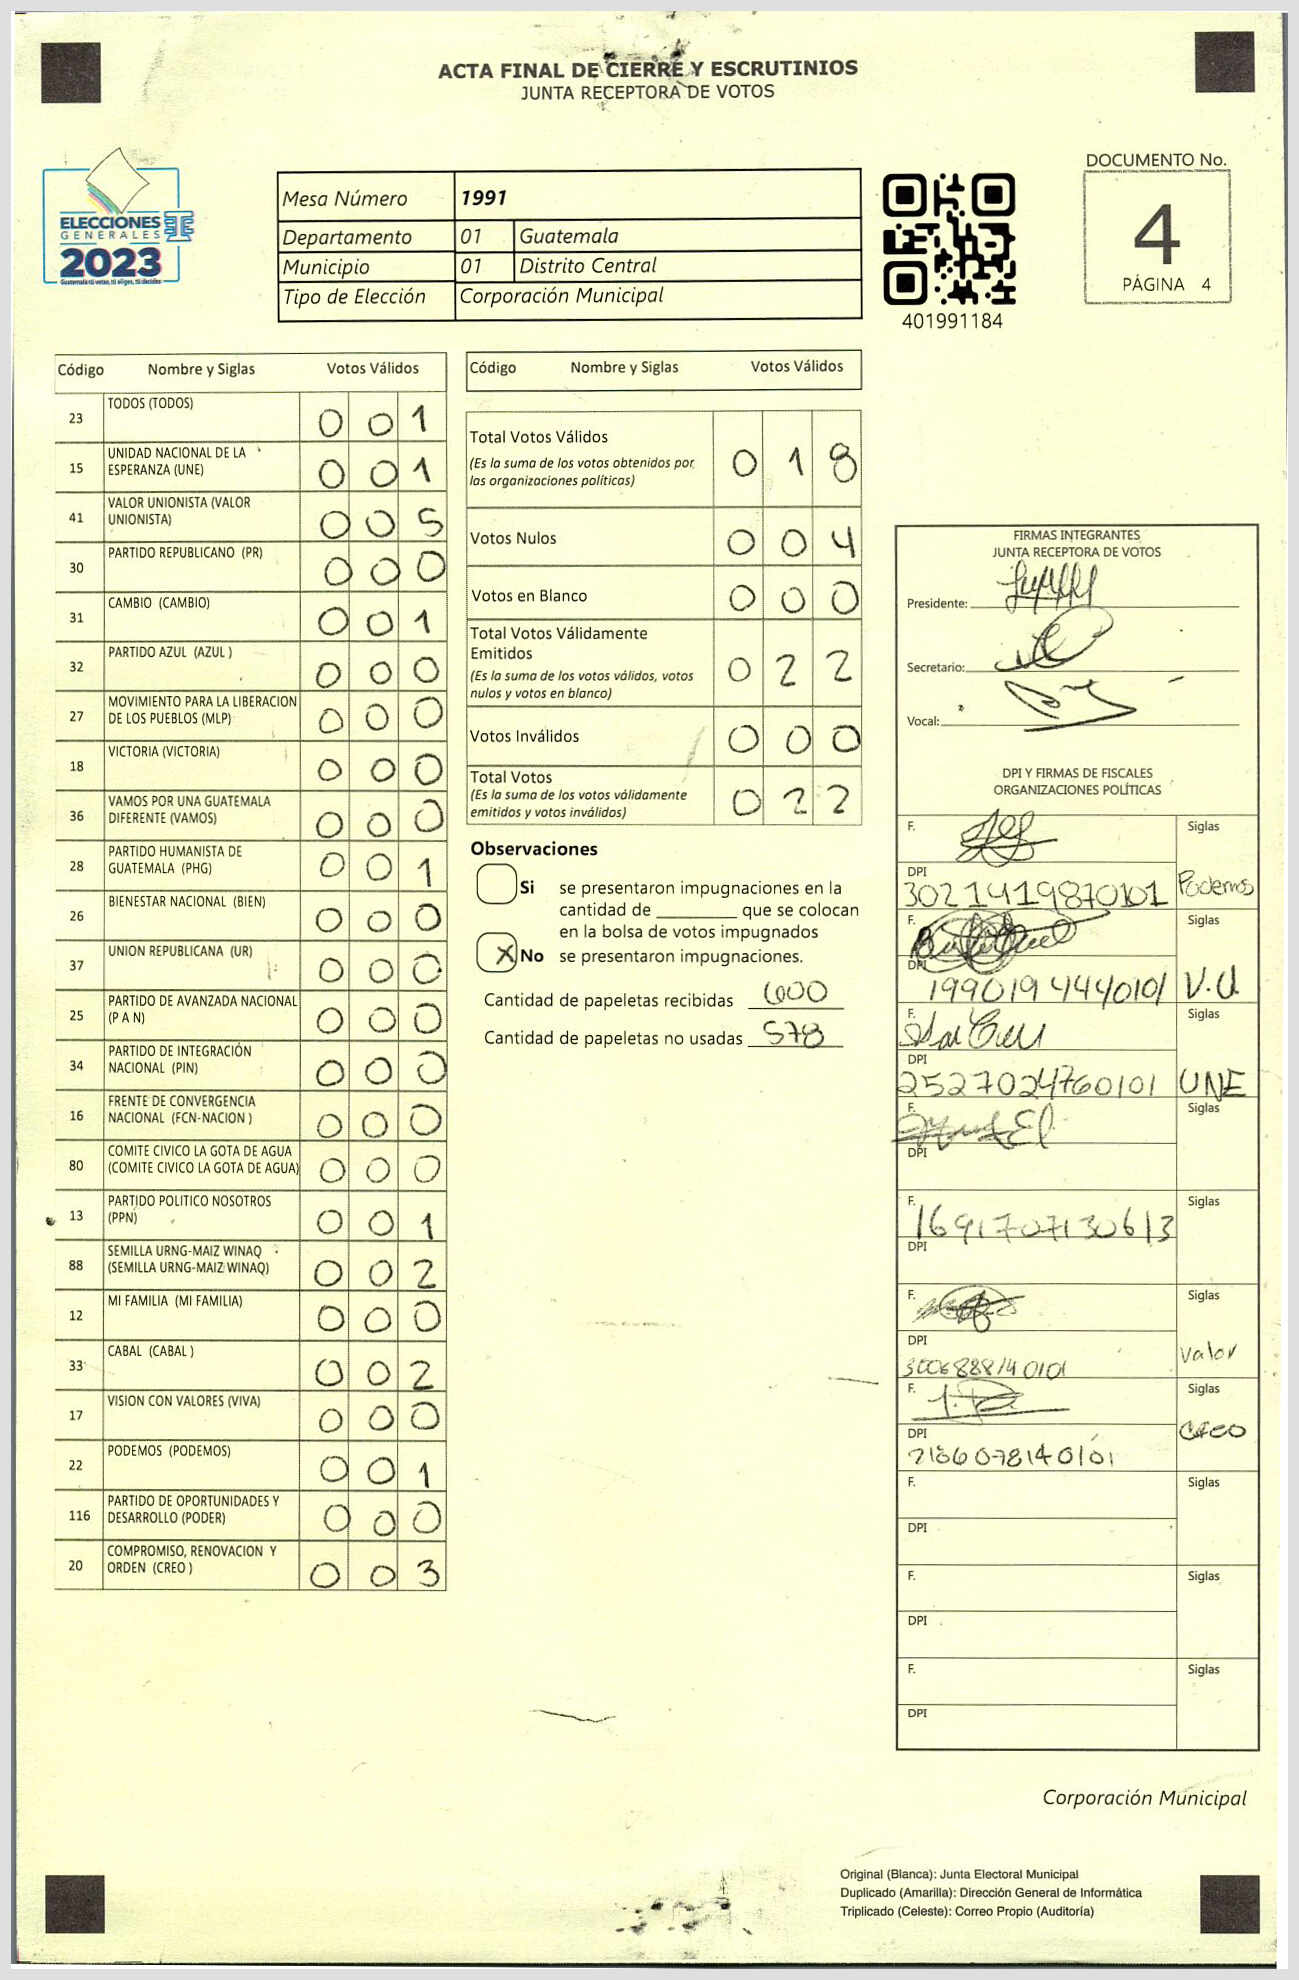 ACTA FINAL DE CIERRE Y ESCRUTINIOS
JUNTA RECEPTORA DE VOTOS
ELECCIONES
GENERALES
2023
Guatemala tú votas, tú eliges, tú decides
Mesa Número 1991
Departamento 01 Guatemala
Municipio 01 Distrito Central
Tipo de Elección Corporación Municipal
401991184
DOCUMENTO No.
4
PÁGINA 4
Código Nombre y Siglas Votos Válidos
23 TODOS (TODOS) 0 0 1
15 UNIDAD NACIONAL DE LA
ESPERANZA (UNE) 0 0 1
41 VALOR UNIONISTA (VALOR
UNIONISTA) 0 0 5
30 PARTIDO REPUBLICANO (PR) 0 0 0
31 CAMBIO (CAMBIO) 0 0 1
32 PARTIDO AZUL (AZUL ) 0 0 0
27 MOVIMIENTO PARA LA LIBERACION
DE LOS PUEBLOS (MLP) 0 0 0
18 VICTORIA (VICTORIA) 0 0 0
36 VAMOS POR UNA GUATEMALA
DIFERENTE (VAMOS) 0 0 0
28 PARTIDO HUMANISTA DE
GUATEMALA (PHG) 0 0 1
26 BIENESTAR NACIONAL (BIEN) 0 0 0
37 UNION REPUBLICANA (UR) 0 0 0
25 PARTIDO DE AVANZADA NACIONAL
(P A N) 0 0 0
34 PARTIDO DE INTEGRACIÓN
NACIONAL (PIN) 0 0 0
16 FRENTE DE CONVERGENCIA
NACIONAL (FCN-NACION ) 0 0 0
80 COMITE CIVICO LA GOTA DE AGUA
(COMITE CIVICO LA GOTA DE AGUA) 0 0 0
13 PARTIDO POLITICO NOSOTROS
(PPN) 0 0 1
88 SEMILLA URNG-MAIZ WINAQ
(SEMILLA URNG-MAIZ WINAQ) 0 0 2
12 MI FAMILIA (MI FAMILIA) 0 0 0
33 CABAL (CABAL ) 0 0 2
17 VISION CON VALORES (VIVA) 0 0 0
22 PODEMOS (PODEMOS) 0 0 1
116 PARTIDO DE OPORTUNIDADES Y
DESARROLLO (PODER) 0 0 0
20 COMPROMISO, RENOVACION Y
ORDEN (CREO ) 0 0 3
Código Nombre y Siglas Votos Válidos
Total Votos Válidos 0 1 8
(Es la suma de los votos obtenidos por
las organizaciones políticas)
Votos Nulos 0 0 4
Votos en Blanco 0 0 0
Total Votos Válidamente
Emitidos 0 2 2
(Es la suma de los votos válidos, votos
nulos y votos en blanco)
Votos Inválidos 0 0 0
Total Votos 0 2 2
(Es la suma de los votos válidamente
emitidos y votos inválidos)
Observaciones
Si se presentaron impugnaciones en la
cantidad de ________ que se colocan
en la bolsa de votos impugnados
X No se presentaron impugnaciones.
Cantidad de papeletas recibidas 600
Cantidad de papeletas no usadas 578
FIRMAS INTEGRANTES
JUNTA RECEPTORA DE VOTOS
Presidente:
Secretario:
Vocal:
DPI Y FIRMAS DE FISCALES
ORGANIZACIONES POLÍTICAS
F. Siglas
DPI
3021419870101 Podemos
F. Siglas
DPI
1990194440101 V.U
F. Siglas
DPI
2527024760101 UNE
F. Siglas
DPI
F. Siglas
1691707130613
DPI
F. Siglas
DPI
3006888140101 Valor
F. Siglas
DPI Creo
2186078140101
F. Siglas
DPI
F. Siglas
DPI
F. Siglas
DPI
Corporación Municipal
Original (Blanca): Junta Electoral Municipal
Duplicado (Amarilla): Dirección General de Informática
Triplicado (Celeste): Correo Propio (Auditoría)